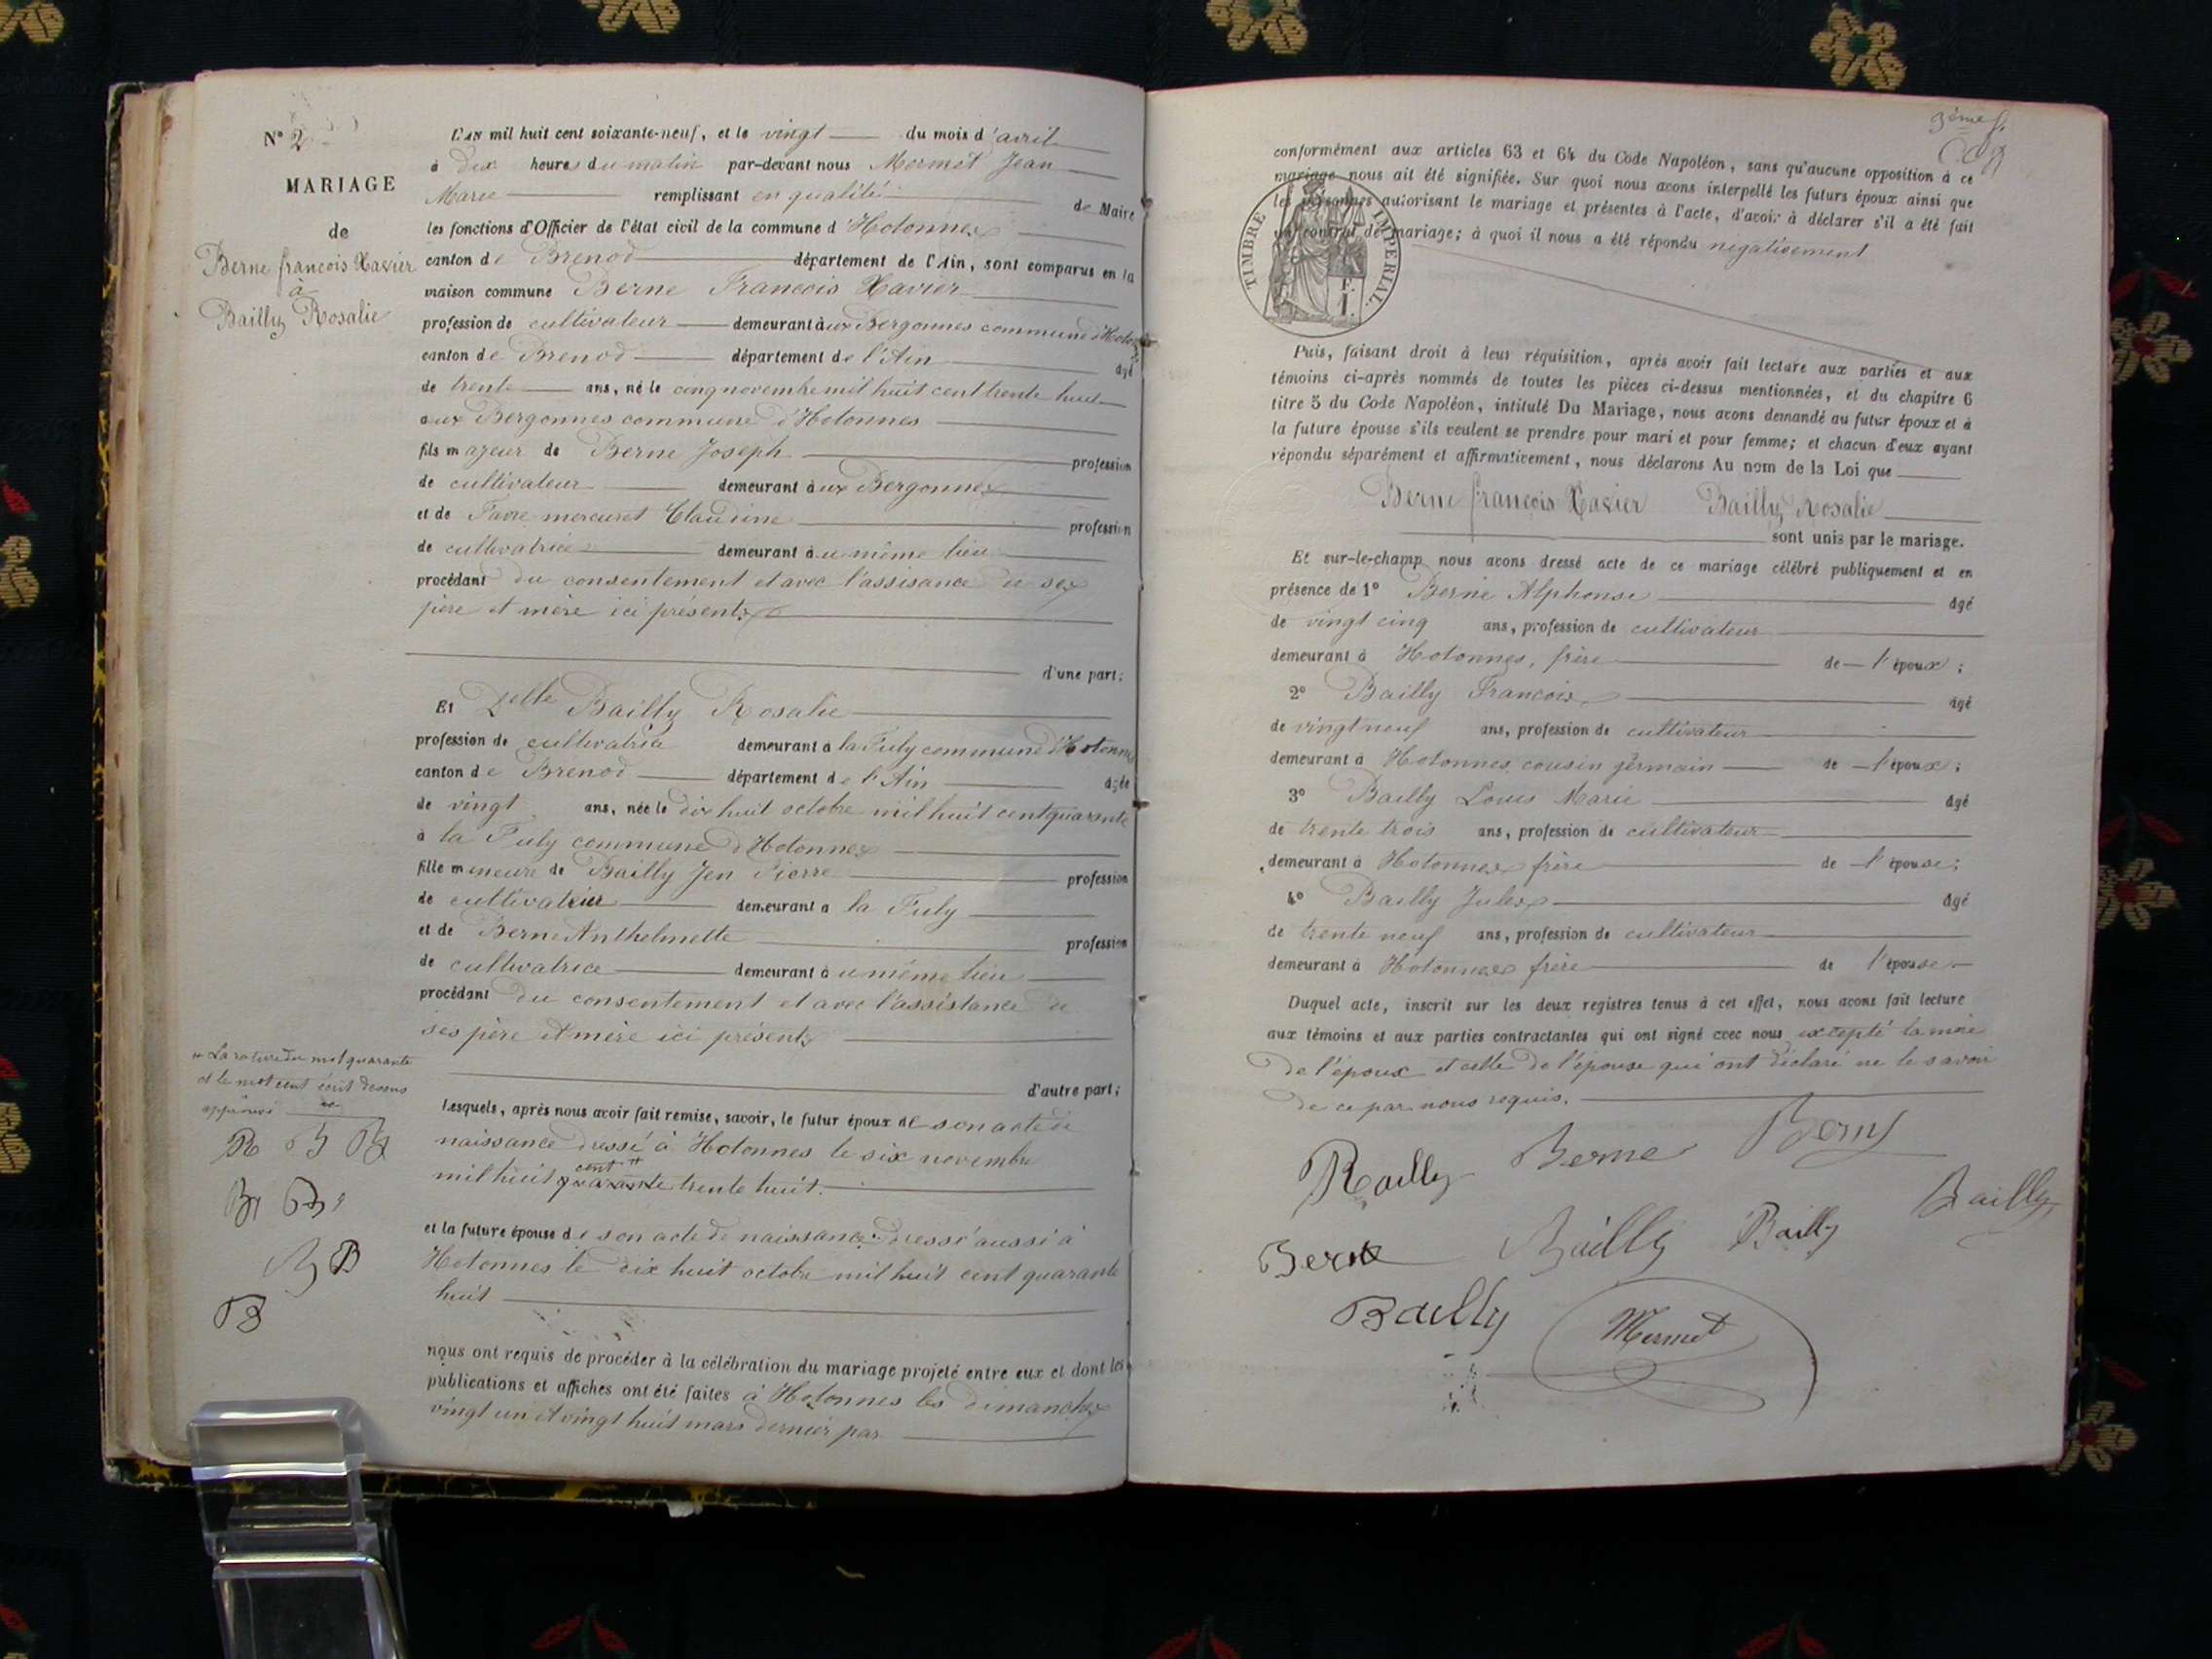 N° 2
MARIAGE
de
Berne françois Xavier
à
Bailly Rosalie
L'AN mil huit cent soixante-neuf, et le vingt du mois d'avril
à dix heures du matin par-devant nous Mermet Jean
Marie remplissant en qualité de Maire
les fonctions d'Officier de l'état civil de la commune d'Hotonnes
canton de Brenod département de l'Ain, sont comparus en la
maison commune Berne François Xavier
profession de cultivateur demeurant aux Bergonnes commune d'Hotonnes
canton de Brenod département de l'Ain âgé
de trente ans, né le cinq novembre mil huit cent trente huit
aux Bergonnes commune d'Hotonnes
fils majeur de Berne Joseph profession
de cultivateur demeurant aux Bergonnes
et de Favre mercuret Claudine profession
de cultivatrice demeurant au même lieu
procédant du consentement et avec l'assisance de ses
père et mère ici présents
d'une part;
Et Delle Bailly Rosalie
profession de cultivatrice demeurant à la Fuly commune d'Hotonnes
canton de Brenod département de l'Ain âgée
de vingt ans, née le dix huit octobre mil huit cent quarante
à la Fuly commune d'Hotonnes
fille mineure de Bailly Jen Pierre profession
de demeurant à la Fuly
et de Berne Anthelmette profession
de cultivatrice demeurant au même lieu
procédant du consentement et avec l'assistance de
ses père et mère ici présents
d'autre part;
Lesquels, après nous avoir fait remise, savoir, le futur époux de son acte de
naissance dressé à Hotonnes le six novembre
mil huit quarante cent trente huit.
et la future épouse de son acte de naissance dressé aussi à
Hotonnes le dix huit octobre mil huit cent quarante
huit
nous ont requis de procéder à la célébration du mariage projeté entre eux et dont les
publications et affiches ont été faites à Hotonnes les dimanches
vingt un et vingt huit mars dernier par
La rature du mot quarante
et le mot cent écrit dessus
approuvé
R B B
B B
B B
B
3ème f.
conformément aux articles 63 et 64 du Code Napoléon, sans qu'aucune opposition à ce
mariage nous ait été signifiée. Sur quoi nous avons interpellé les futurs époux ainsi que
les personnes autorisant le mariage et présentes à l'acte, d'avoir à déclarer s'il a été fait
un contrat de mariage; à quoi il nous a été répondu négativement
TIMBRE IMPERIAL.
Puis, faisant droit à leur réquisition, après avoir fait lecture aux parties et aux
témoins ci-après nommés de toutes les pièces ci-dessus mentionnées, et du chapitre 6
titre 5 du Code Napoléon, intitulé Du Mariage, nous avons demandé au futur époux et à
la future épouse s'ils veulent se prendre pour mari et pour femme; et chacun d'eux ayant
répondu séparément et affirmativement, nous déclarons Au nom de la Loi que
Berne françois Xavier Bailly Rosalie
sont unis par le mariage.
Et sur-le-champ nous avons dressé acte de ce mariage célébré publiquement et en
présence de 1° Berne Alphonse âgé
de vingt cinq ans, profession de cultivateur
demeurant à Hotonnes, frère de l'époux;
2° Bailly François âgé
de vingt neuf ans, profession de cultivateur
demeurant à Hotonnes cousin germain de l'époux;
3° Bailly Louis Marie âgé
de trente trois ans, profession de cultivateur
demeurant à Hotonnes frère de l'épouse;
4° Bailly Jules âgé
de trente neuf ans, profession de cultivateur
demeurant à Hotonnes frère de l'épouse
Duquel acte, inscrit sur les deux registres tenus à cet effet, nous avons fait lecture
aux témoins et aux parties contractantes qui ont signé avec nous excepté la mère
de l'époux et celle de l'épouse qui ont déclaré ne le savoir
de ce par nous requis.
Bailly Berne Berne
Bailly
Berne Bailly Bailly
Bailly Mermet